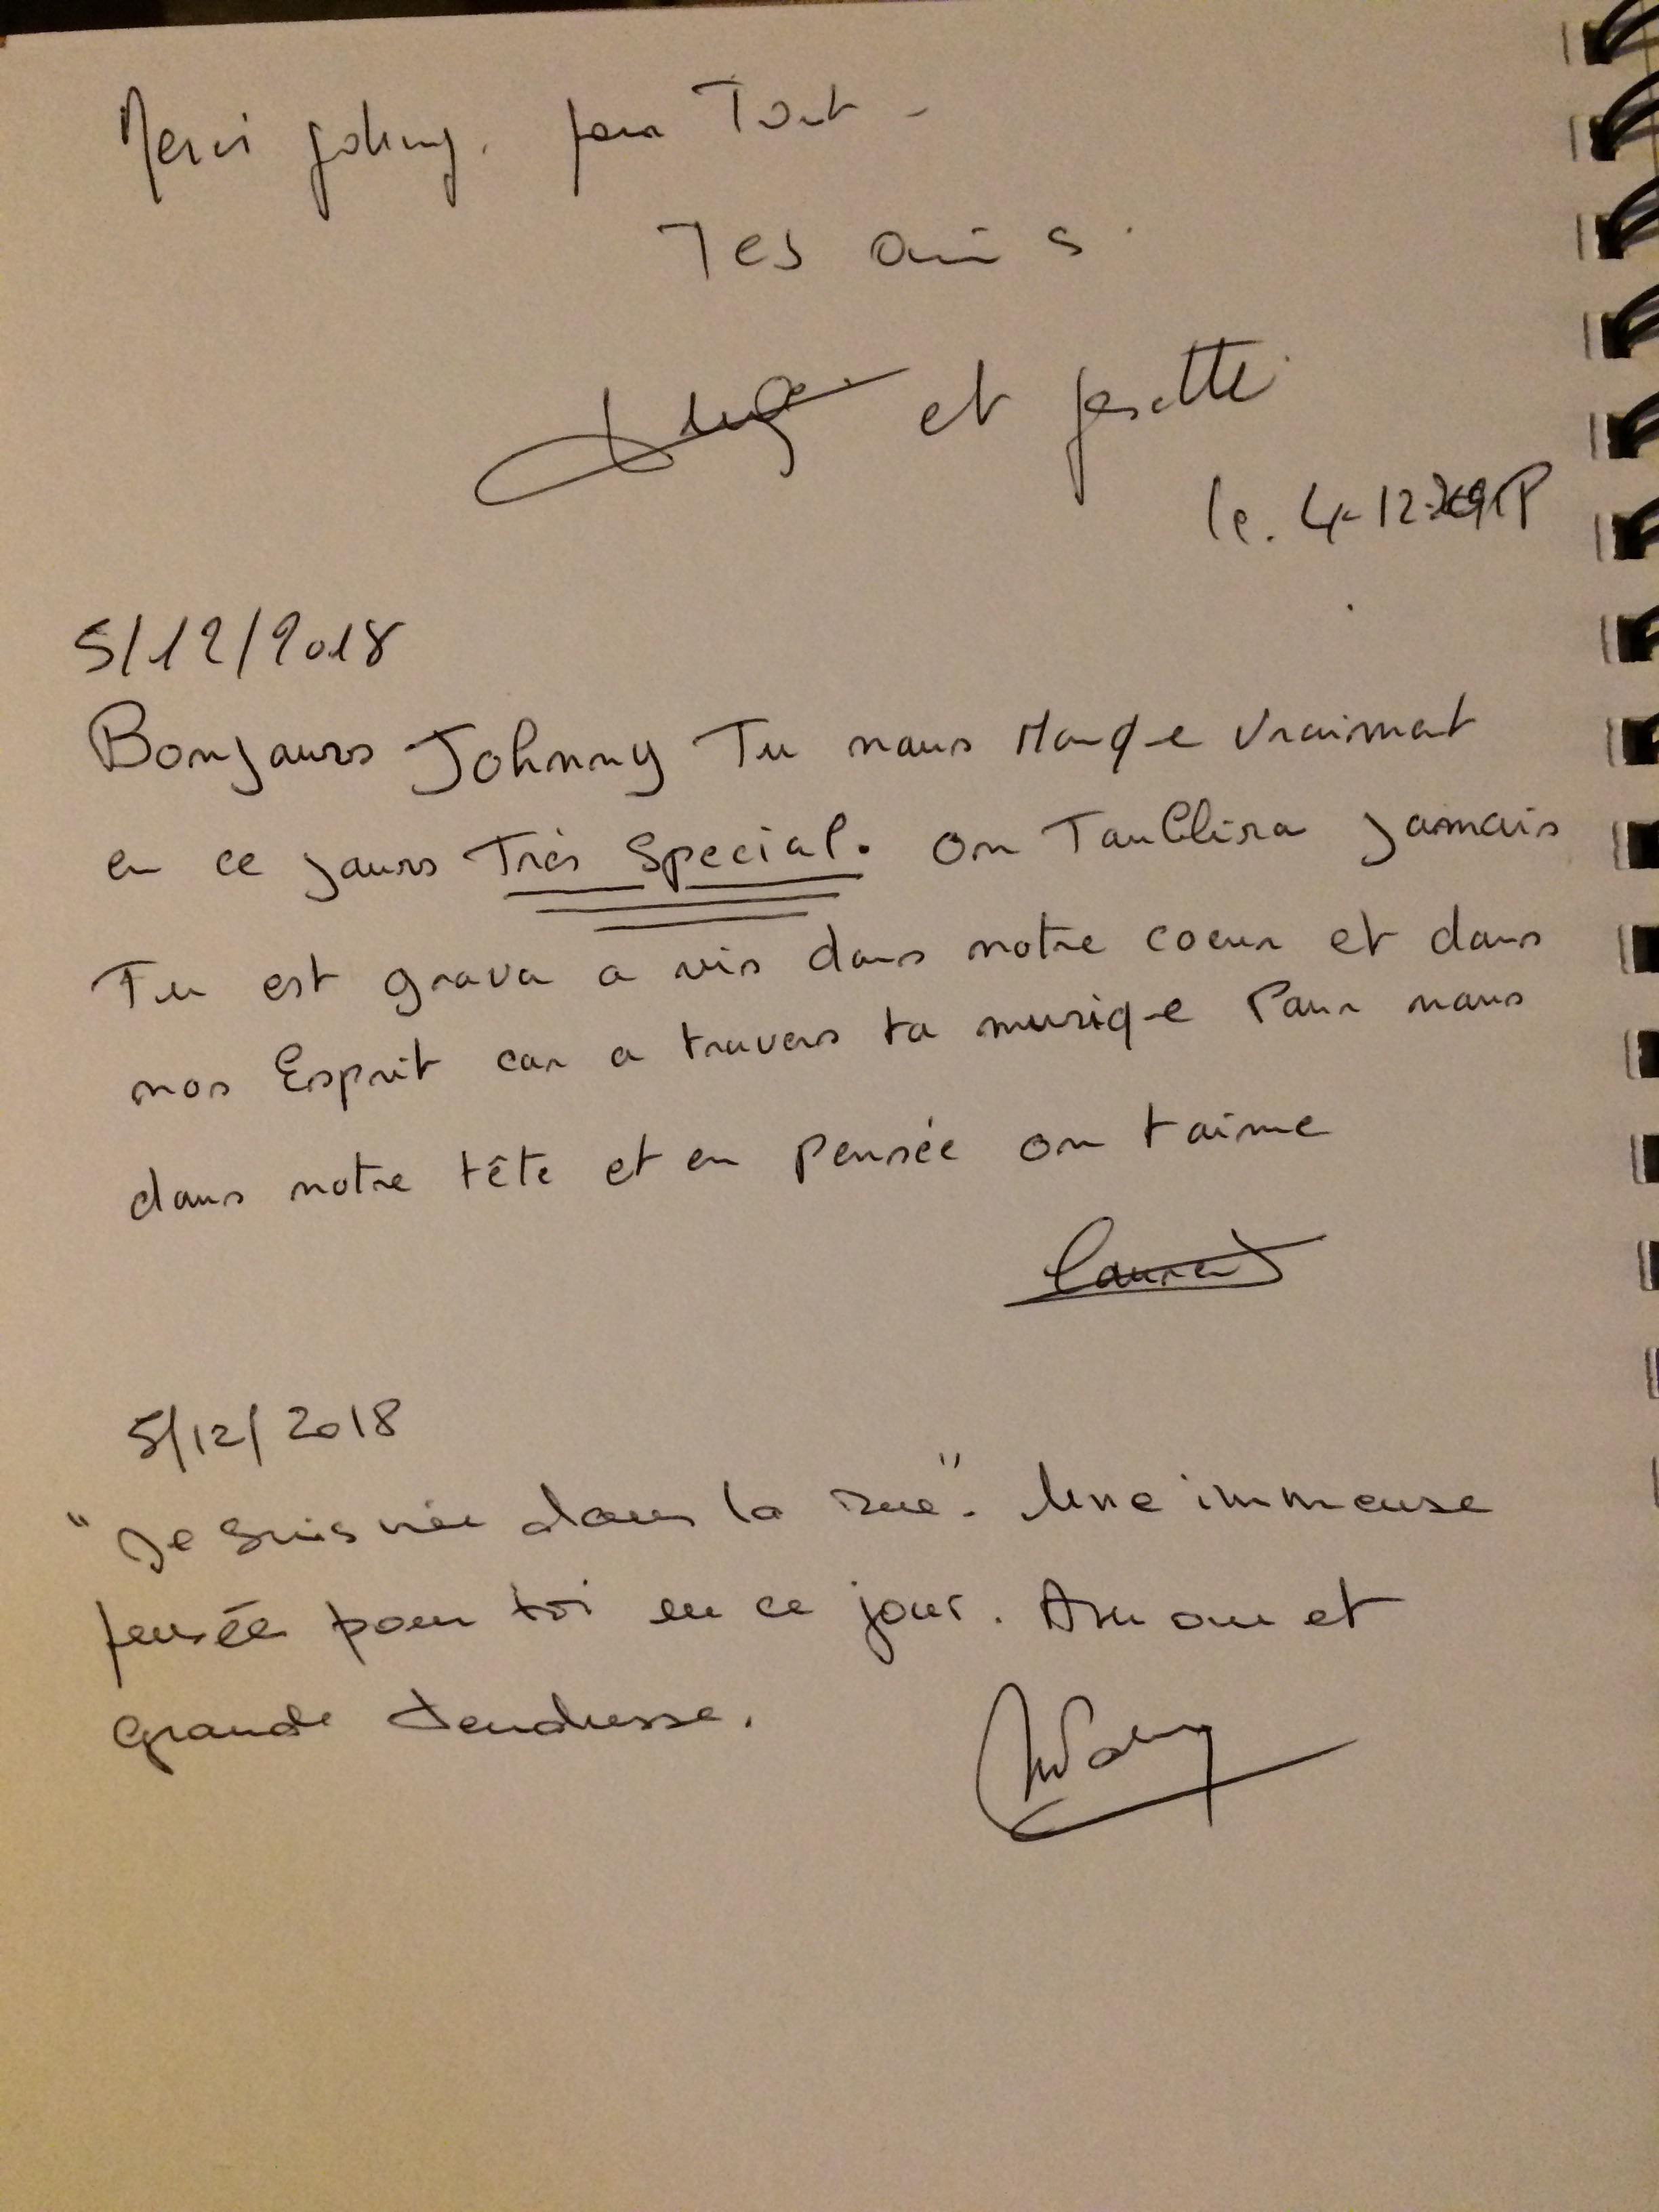 Merci Johnny. pour Tout -
Tes amis.
et Josette
le. 4-12-
5/12/2018
Bonjours Johnny Tu nous Manq-e vraiment
en ce jours Très Special. on Toublira jamais
Tu est grava a vis dans notre coeur et dans
nos Esprit car a travers ta musiq-e Pour nous
dans notre tête et en pensée on t aime
Laurent
5/12/2018
"Je suis née dans la rue". Une immense
pensée pour toi en ce jour. Amour et
grande tendresse.